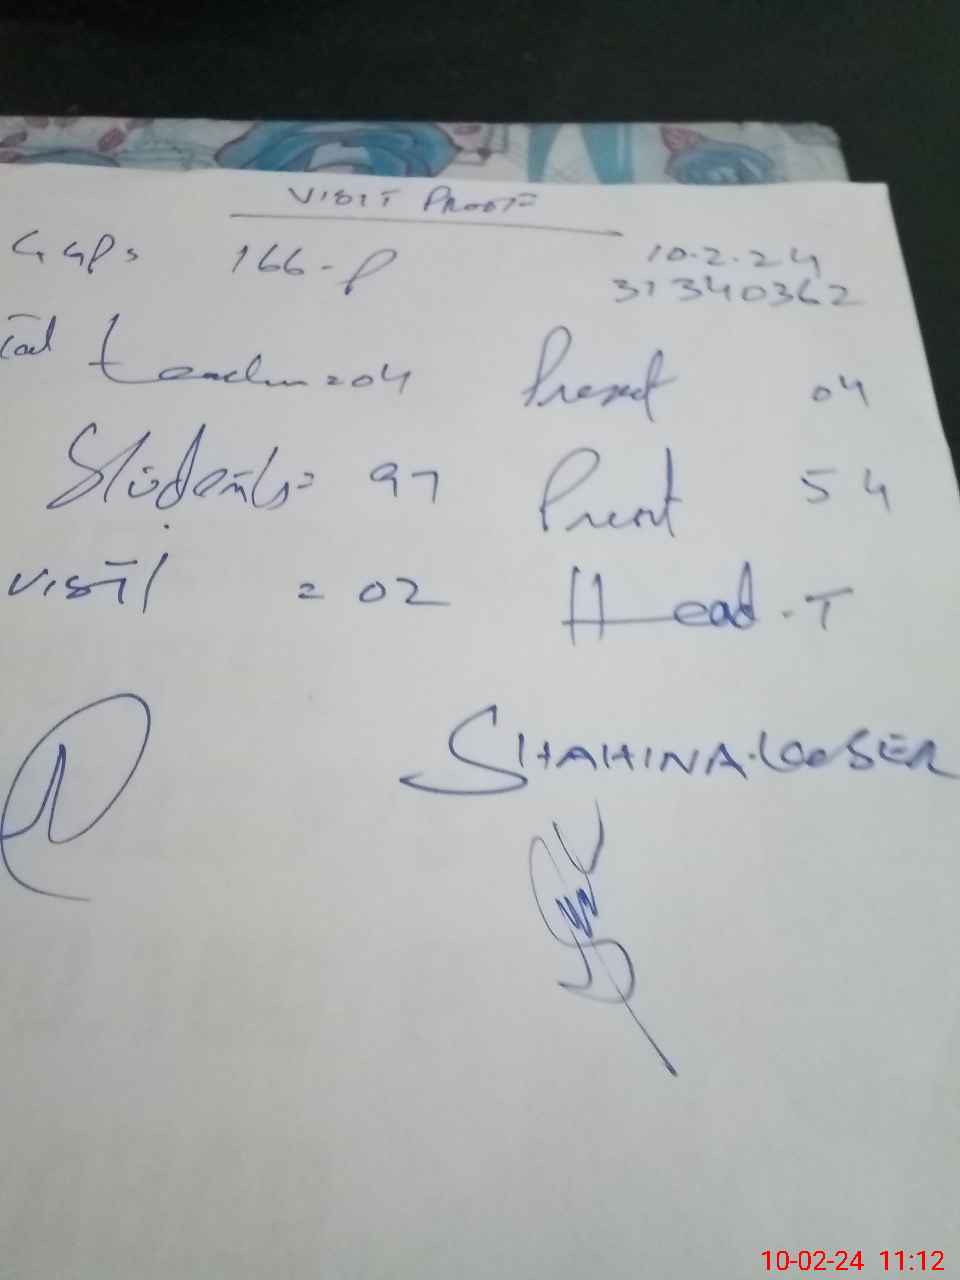 VISIT PROOF
GGPS 166-P 10.2.24
31340362
Total teacher = 04 Present 04
Students = 97 Present 54
Visit = 02 Head-T
SHAHINA KOSER
10-02-24 11:12